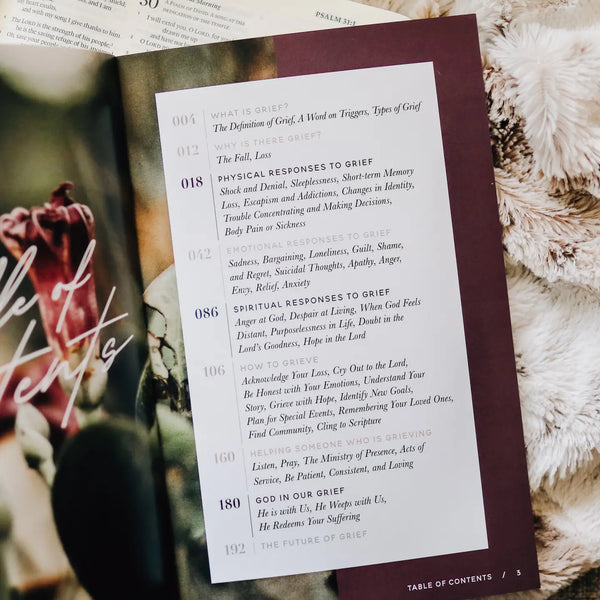 30
Morning
A PSALM OF DAVID. A SONG AT THE
DEDICATION OF THE TEMPLE.
PSALM 31:1
I will extol you, O LORD,
The LORD is the strength of his people;
he is the saving refuge of his
Table of
Contents
004 WHAT IS GRIEF?
The Definition of Grief, A Word on Triggers, Types of Grief
012 WHY IS THERE GRIEF?
The Fall, Loss
018 PHYSICAL RESPONSES TO GRIEF
Shock and Denial, Sleeplessness, Short-term Memory
Loss, Escapism and Addictions, Changes in Identity,
Trouble Concentrating and Making Decisions,
Body Pain or Sickness
042 EMOTIONAL RESPONSES TO GRIEF
Sadness, Bargaining, Loneliness, Guilt, Shame,
and Regret, Suicidal Thoughts, Apathy, Anger,
Envy, Relief, Anxiety
086 SPIRITUAL RESPONSES TO GRIEF
Anger at God, Despair at Living, When God Feels
Distant, Purposelessness in Life, Doubt in the
Lord's Goodness, Hope in the Lord
106 HOW TO GRIEVE
Acknowledge Your Loss, Cry Out to the Lord,
Be Honest with Your Emotions, Understand Your
Story, Grieve with Hope, Identify New Goals,
Plan for Special Events, Remembering Your Loved Ones,
Find Community, Cling to Scripture
160 HELPING SOMEONE WHO IS GRIEVING
Listen, Pray, The Ministry of Presence, Acts of
Service, Be Patient, Consistent, and Loving
180 GOD IN OUR GRIEF
He is with Us, He Weeps with Us,
He Redeems Your Suffering
192 THE FUTURE OF GRIEF
TABLE OF CONTENTS / 3